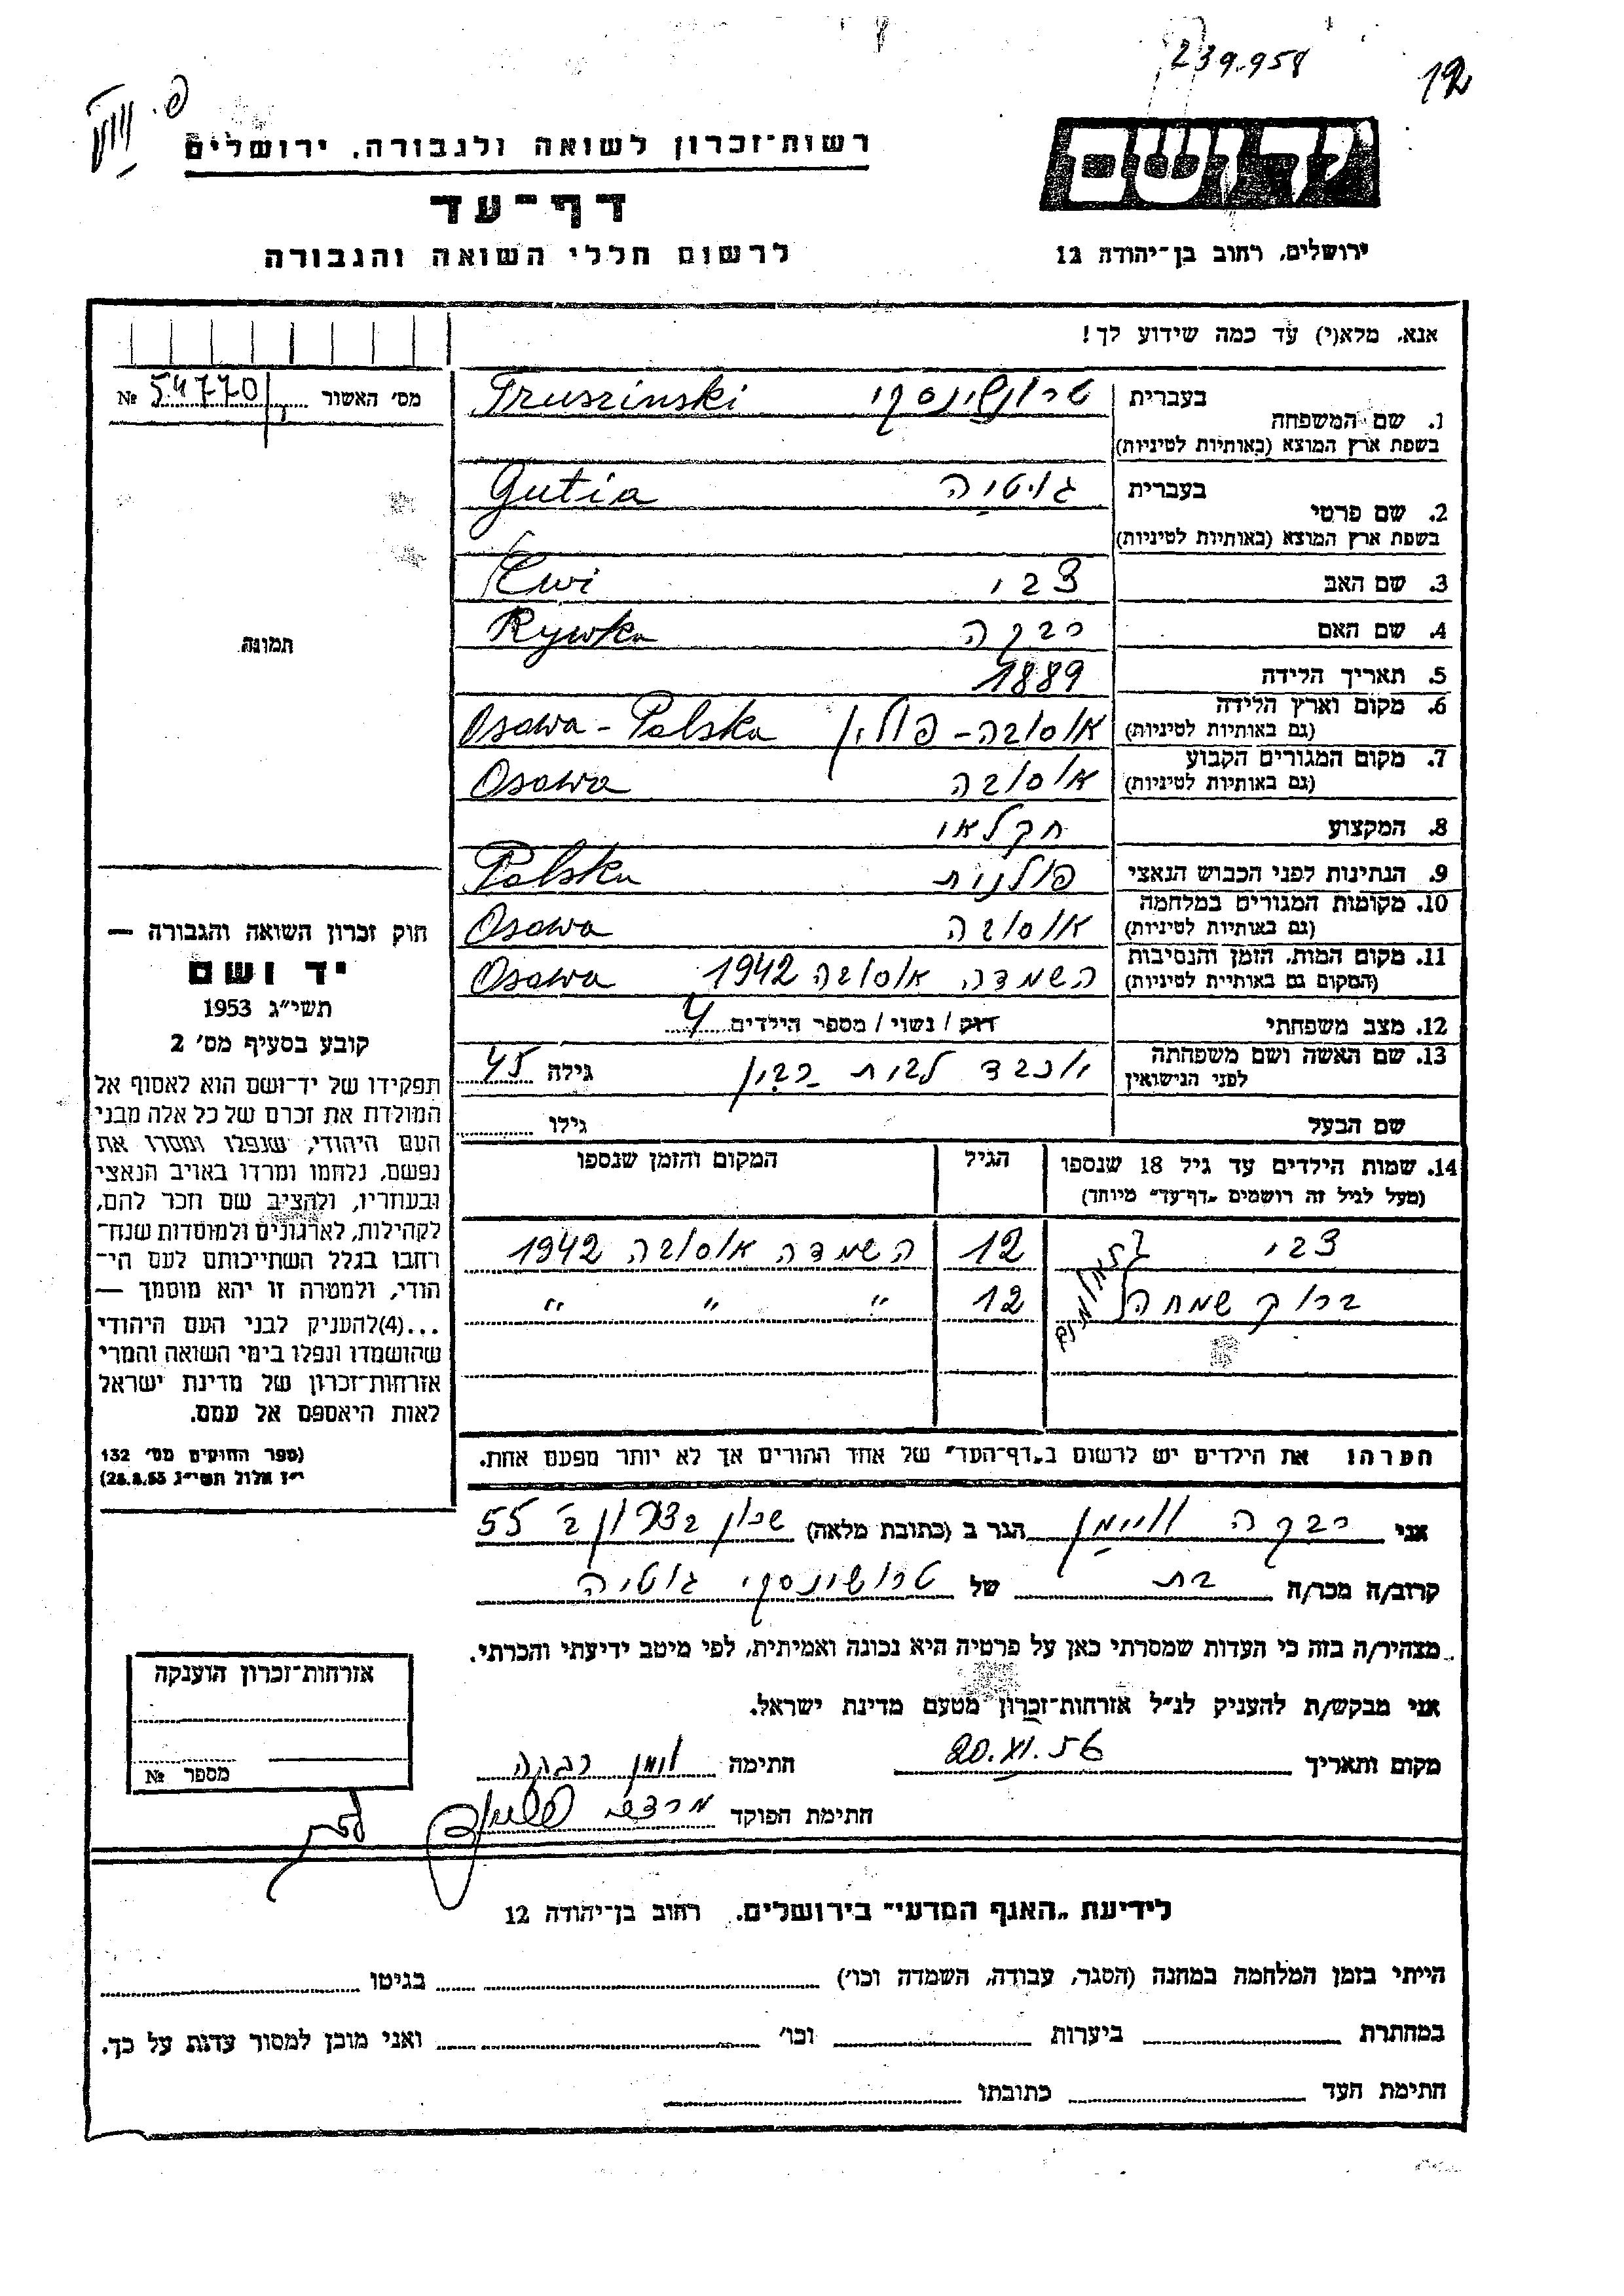 239.958
12
רשות־זכרון לשואה ולגבורה, ירושלים
יד ושם
דף־עד
לרשום חללי השואה והגבורה
ירושלים, רחוב בן־יהודה 12
אנא, מלא(י) עד כמה שידוע לך!
מס' האשור № 54770
1. שם המשפחה בעברית טרושינסקי Truszinski
בשפת ארץ המוצא (באותיות לטיניות)
2. שם פרטי בעברית גוטיה Gutia
בשפת ארץ המוצא (באותיות לטיניות)
3. שם האב צבי Cwi
4. שם האם רבקה Rywka
5. תאריך הלידה 1889
6. מקום וארץ הלידה (גם באותיות לטיניות) אוסובה - פולין Osowa - Polska
7. מקום המגורים הקבוע (גם באותיות לטיניות) אוסובה Osowa
8. המקצוע חקלאי
9. הנתינות לפני הכבוש הנאצי פולנית Polska
10. מקומות המגורים במלחמה (גם באותיות לטיניות) אוסובה Osowa
11. מקום המות, הזמן והנסיבות (המקום גם באותיות לטיניות) השמדה אוסובה 1942 Osowa
12. מצב משפחתי רווק / נשוי / מספר הילדים 4
13. שם האשה ושם משפחתה לפני הנישואין יוכבד לבית גילה 45
שם הבעל גילו
14. שמות הילדים עד גיל 18 שנספו הגיל המקום והזמן שנספו
(מעל לגיל זה רושמים "דף־עד" מיוחד)
צבי 12 השמדה אוסובה 1942
ברוך שמחה 12 " " "
הערה: את הילדים יש לרשום ב"דף־העד" של אחד ההורים אך לא יותר מפעם אחת.
תמונה
חוק זכרון השואה והגבורה —
יד ושם
תשי"ג 1953
קובע בסעיף מס' 2
תפקידו של יד־ושם הוא לאסוף אל
המולדת את זכרם של כל אלה מבני
העם היהודי, שנפלו ומסרו את
נפשם, נלחמו ומרדו באויב הנאצי
ובעוזריו, ולהציב שם וזכר להם,
לקהילות, לארגונים ולמוסדות שנח־
רבו בגלל השתייכותם לעם הי־
הודי, ולמטרה זו יהא מוסמך —
...(4)להעניק לבני העם היהודי
שהושמדו ונפלו בימי השואה והמרי
אזרחות־זכרון של מדינת ישראל
לאות היאספם אל עמם.
(ספר החוקים מס' 132
י"ז אלול תשי"ג 28.8.53)
אני רבקה ויימן הגר ב (כתובת מלאה) שכון בצרון ב' 55
קרוב/ה מכר/ה בת של טרושינסקי גוטיה
מצהיר/ה בזה כי העדות שמסרתי כאן על פרטיה היא נכונה ואמיתית, לפי מיטב ידיעתי והכרתי.
אני מבקש/ת להעניק לנ"ל אזרחות־זכרון מטעם מדינת ישראל.
מקום ותאריך 20.XI.56 חתימה וימן רבקה
חתימת הפוקד מרדכי
אזרחות־זכרון הוענקה
מספר №
לידיעת "האגף המדעי" בירושלים, רחוב בן־יהודה 12
הייתי בזמן המלחמה במחנה (הסגר, עבודה, השמדה וכו') בגיטו
במחתרת ביערות וכו' ואני מוכן למסור עדות על כך.
חתימת העד כתובתו